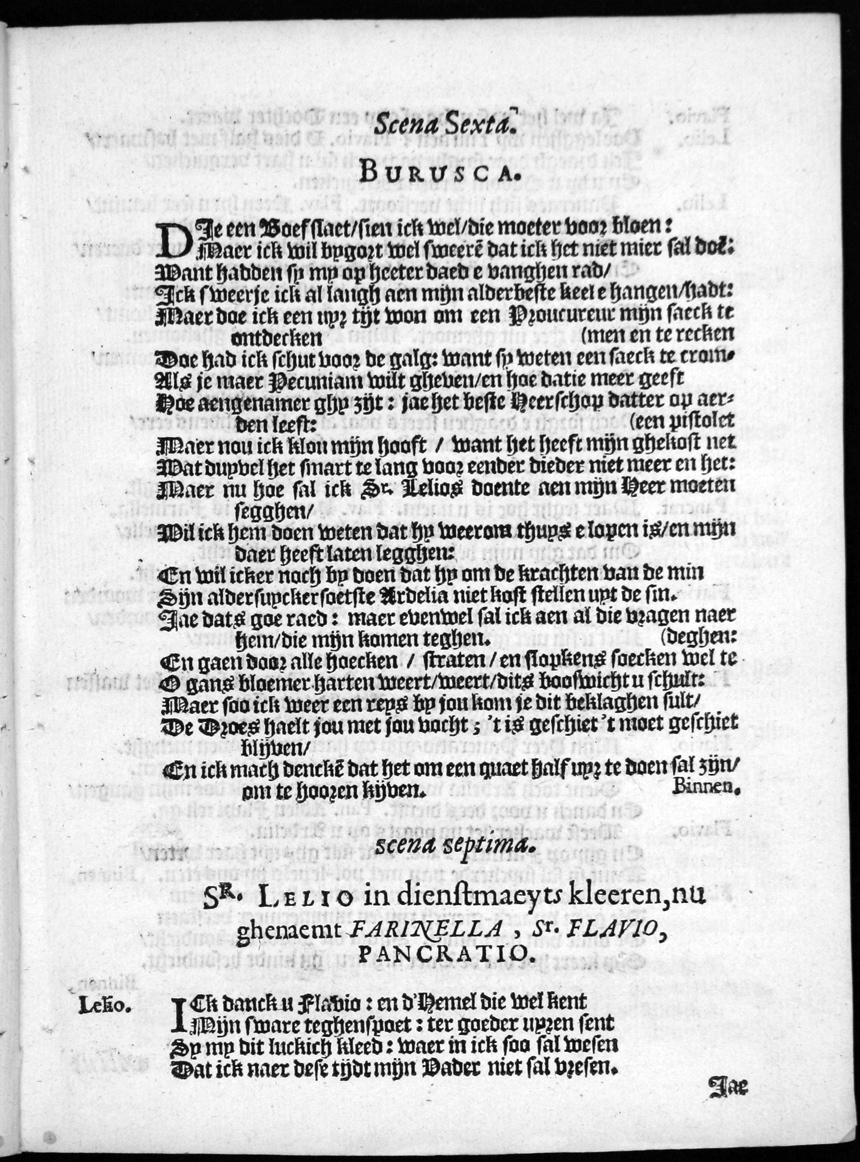 Scena Sexta.
BURUSCA.
DIe een Boef slaet/sien ick wel/die moeter voor bloen:
Maer ick wil bygort wel sweerē dat ick het niet mier sal doē:
Want hadden sy my op heeter daed e vanghen rad/
Ick sweerje ick al langh aen mijn alderbeste keel e hangen/hadt:
Maer doe ick een uyr tijt won om een Proucureur mijn saeck te
ontdecken (men en te recken
Doe had ick schut voor de galg: want sy weten een saeck te crom-
Als je maer Pecuniam wilt gheven/en hoe datie meer geeft
Hoe aengenamer ghy zijt: jae het beste Heerschop datter op aer-
den leeft: (een pistolet
Maer nou ick klou mijn hooft / want het heeft mijn ghekost net
Wat duyvel het smart te lang voor eender dieder niet meer en het:
Maer nu hoe sal ick Sr. Lelios doente aen mijn Heer moeten
segghen/
Wil ick hem doen weten dat hy weerom thuys e lopen is/en mijn
daer heeft laten legghen:
En wil icker noch by doen dat hy om de krachten van de min
Sijn aldersuyckersoetste Ardelia niet kost stellen uyt de sin.
Jae dats goe raed: maer evenwel sal ick aen al die vragen naer
hem/die mijn komen teghen. (deghen:
En gaen door alle hoecken / straten/en slopkens soecken wel te
O gans bloemer harten weert/weert/dits booswicht u schult:
Maer soo ick weer een reys by jou kom je dit beklaghen sult/
De Droes haelt jou met jou vocht; 't is geschiet 't moet geschiet
blijven/
En ick mach denckē dat het om een quaet half uyr te doen sal zijn/
om te hooren kijven. Binnen.
scena septima.
SR. LELIO in dienstmaeyts kleeren, nu
ghenaemt FARINELLA, Sr. FLAVIO,
PANCRATIO.
Lelio. ICk danck u Flavio: en d'Hemel die wel kent
Mijn sware teghenspoet: ter goeder uyren sent
Sy my dit luckich kleed: waer in ick soo sal wesen
Dat ick naer dese tijdt mijn Vader niet sal vresen.
Jae